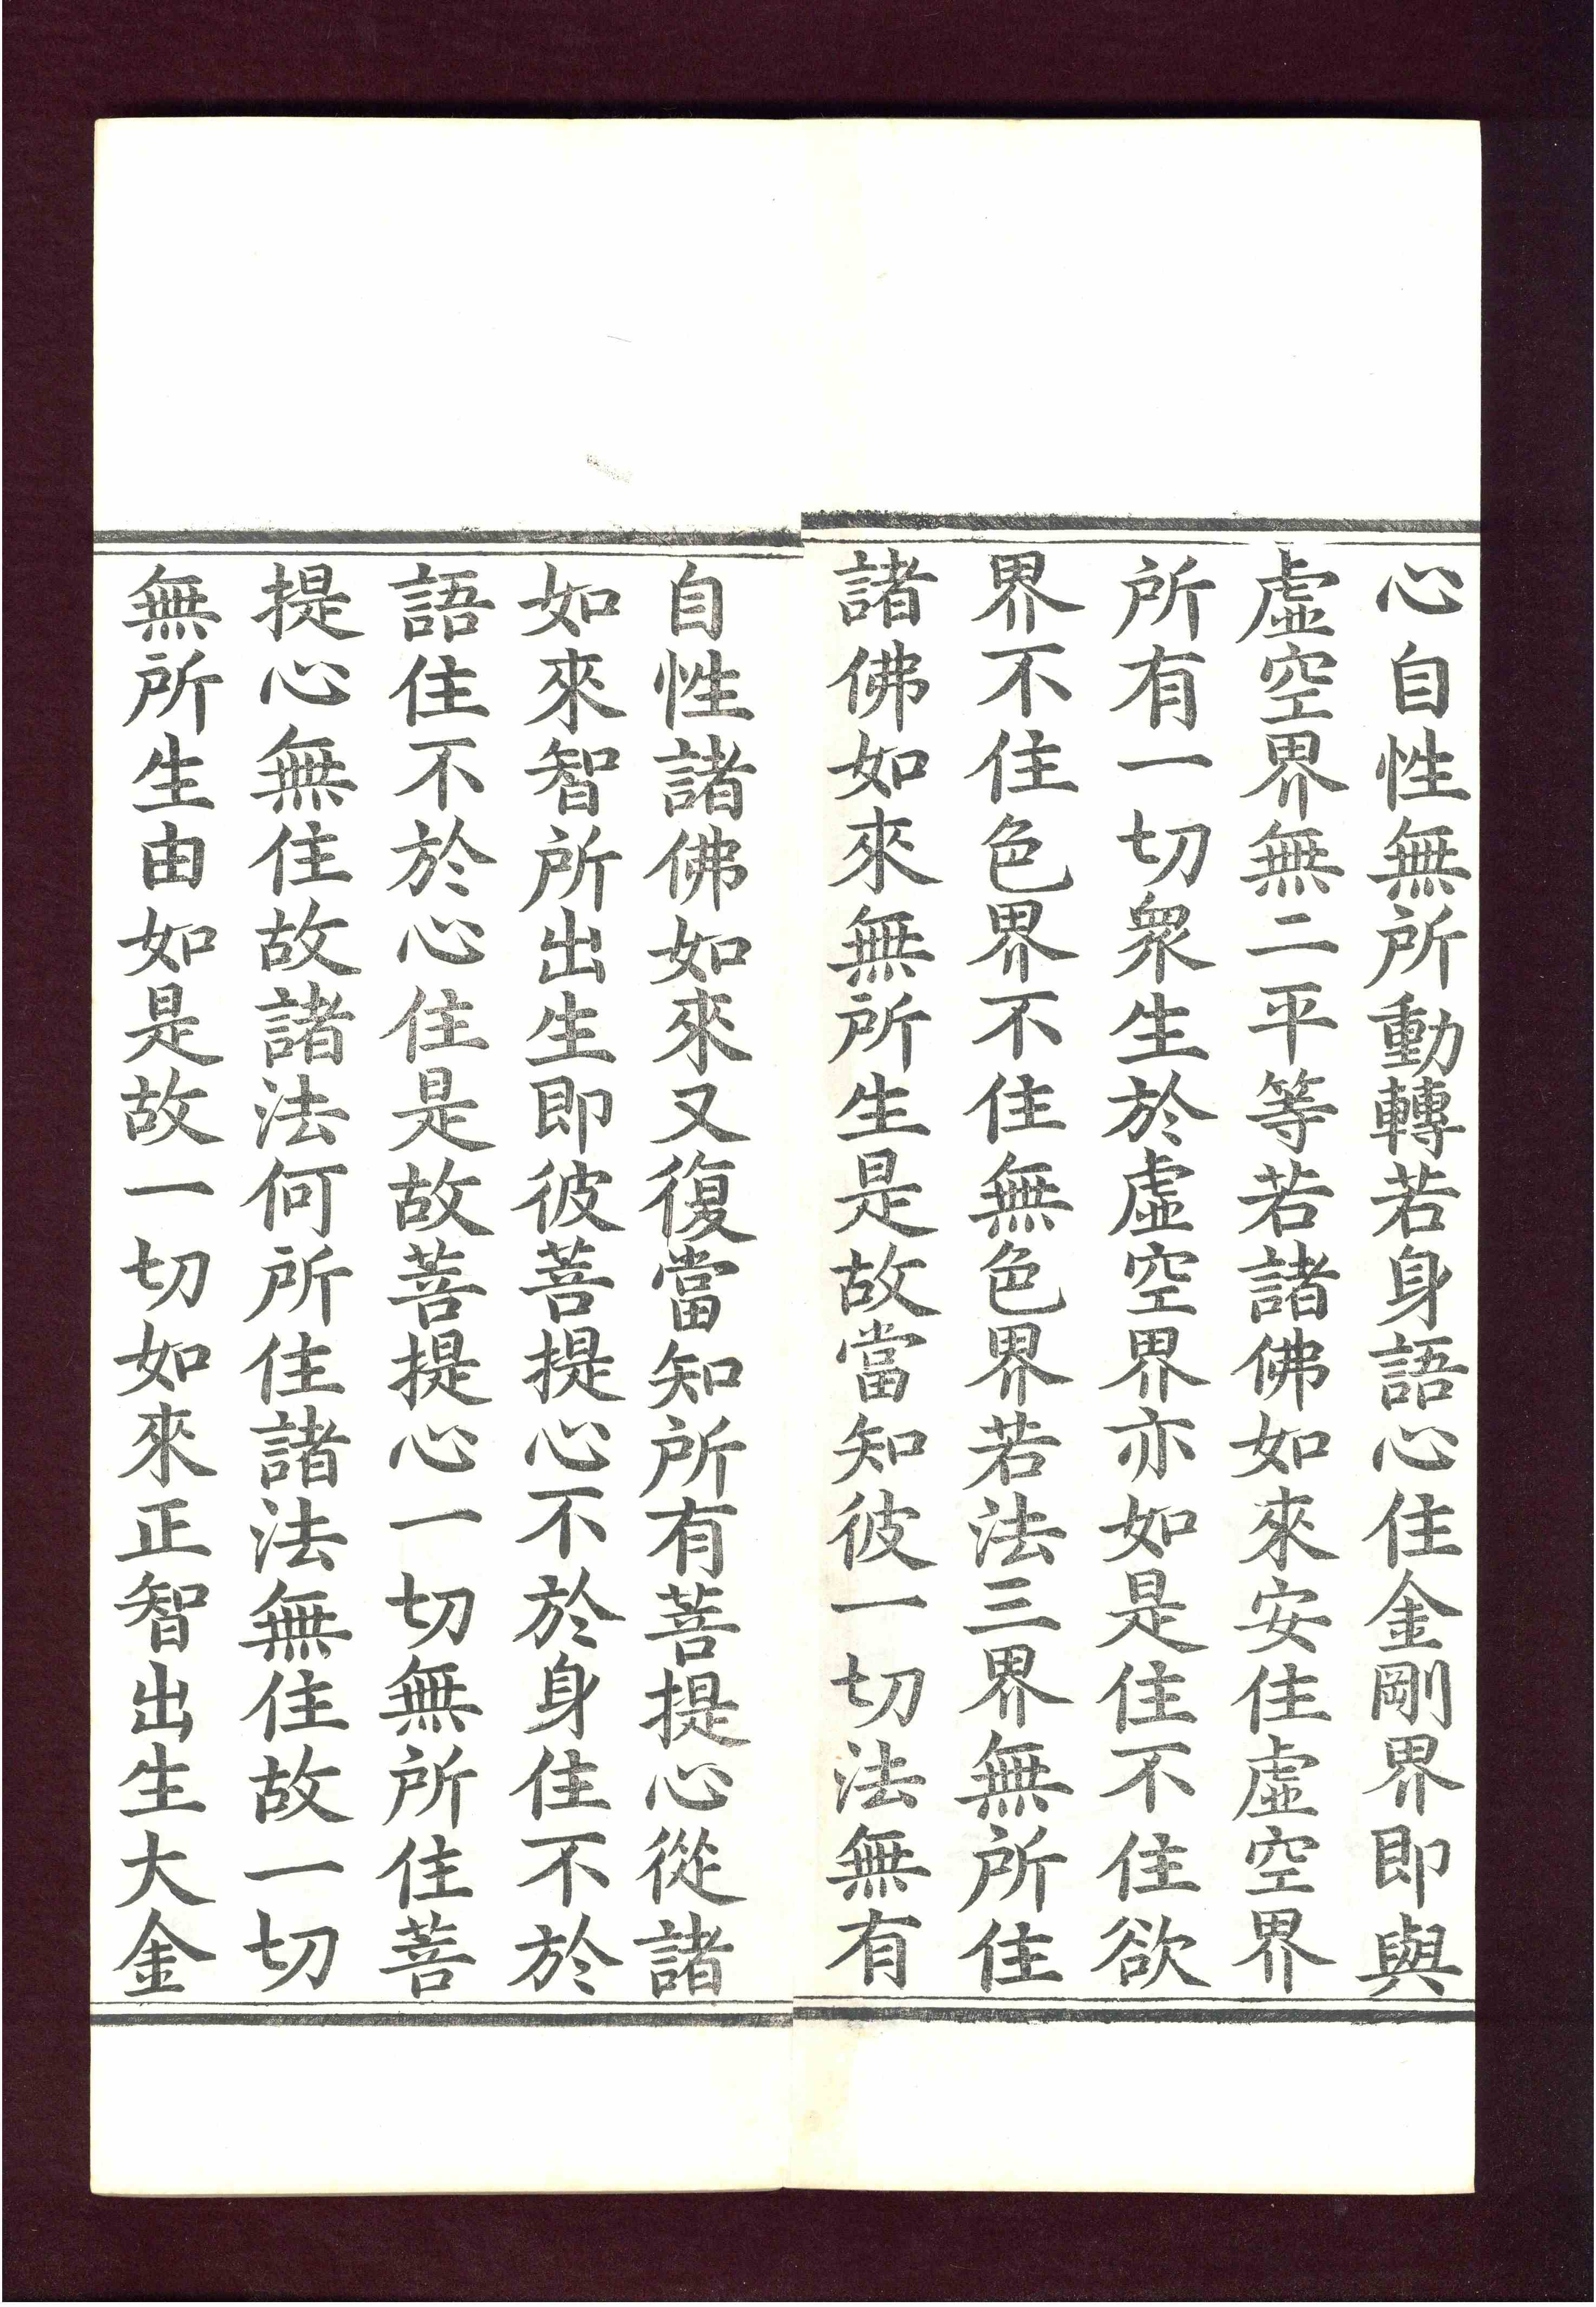 心自性無所動轉若身語心住金剛界即與
虛空界無二平等若諸佛如來安住虛空界
所有一切衆生於虛空界亦如是住不住欲
界不住色界不住無色界若法三界無所住
諸佛如來無所生是故當知彼一切法無有
自性諸佛如來又復當知所有菩提心從諸
如來智所出生即彼菩提心不於身住不於
語住不於心住是故菩提心一切無所住菩
提心無住故諸法何所住諸法無住故一切
無所生由如是故一切如來正智出生大金